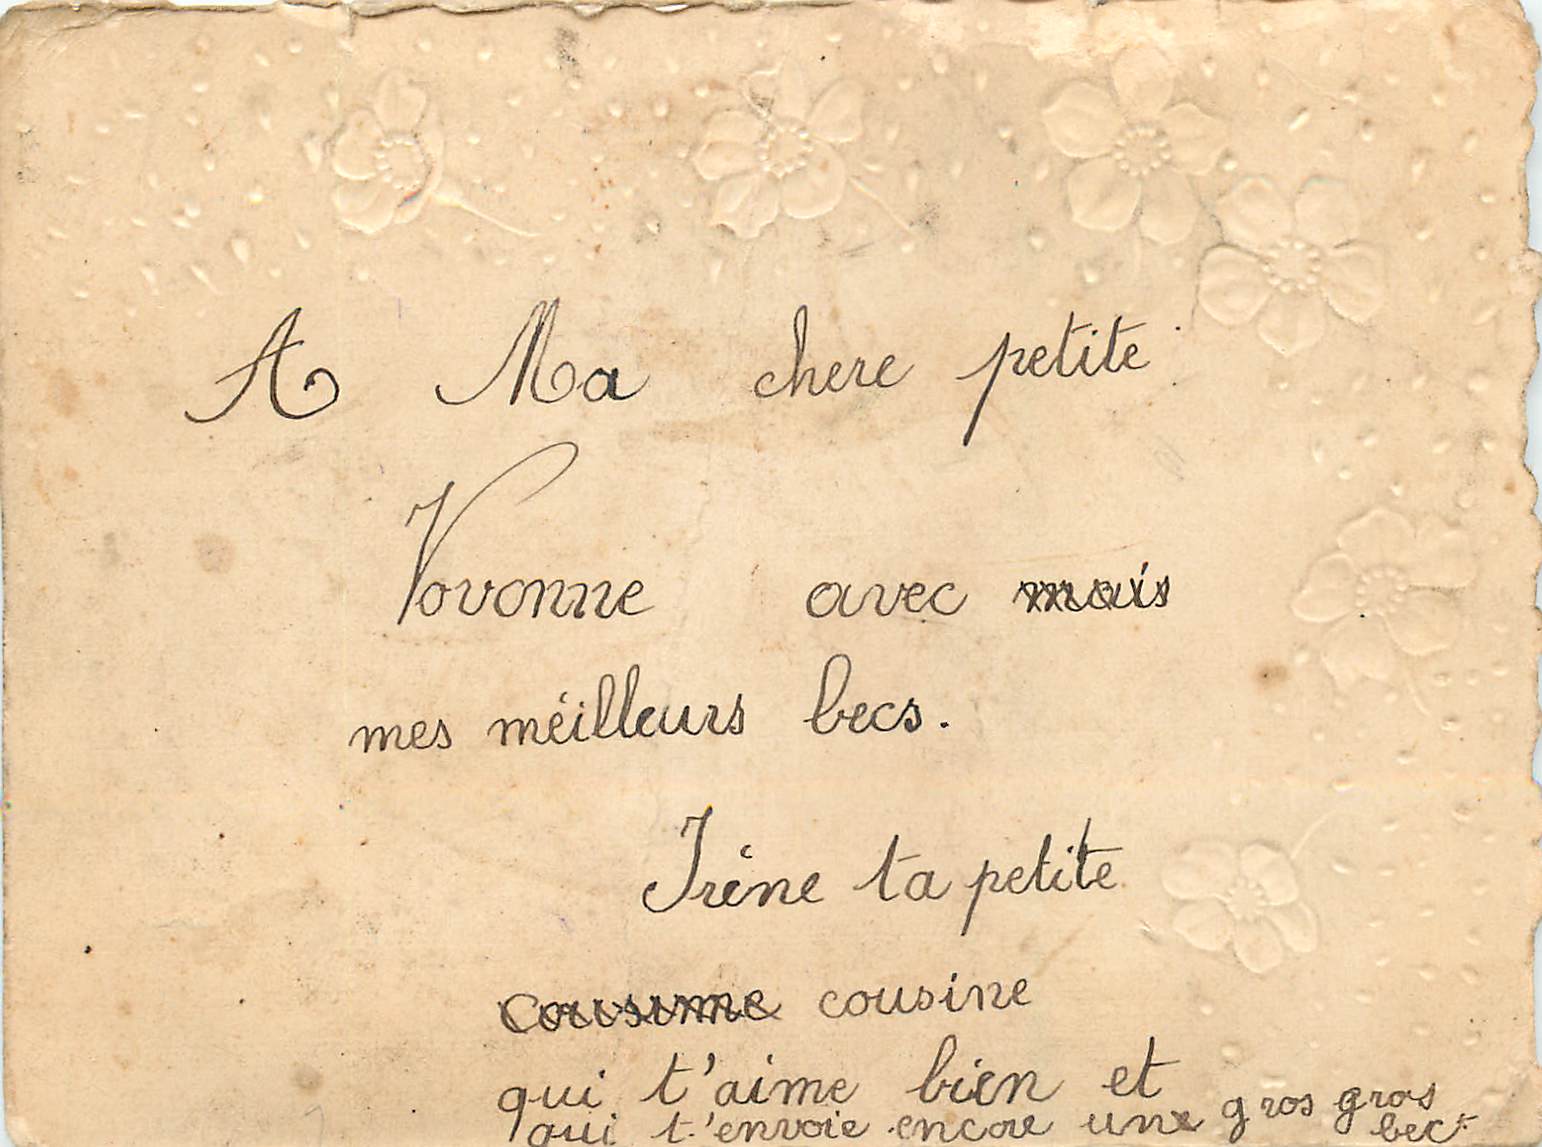 A Ma chere petite
Vovonne avec mais
mes méilleurs becs.
Irène ta petite
cousine cousine
qui t'aime bien et
qui t'envoie encore une gros gros
bec